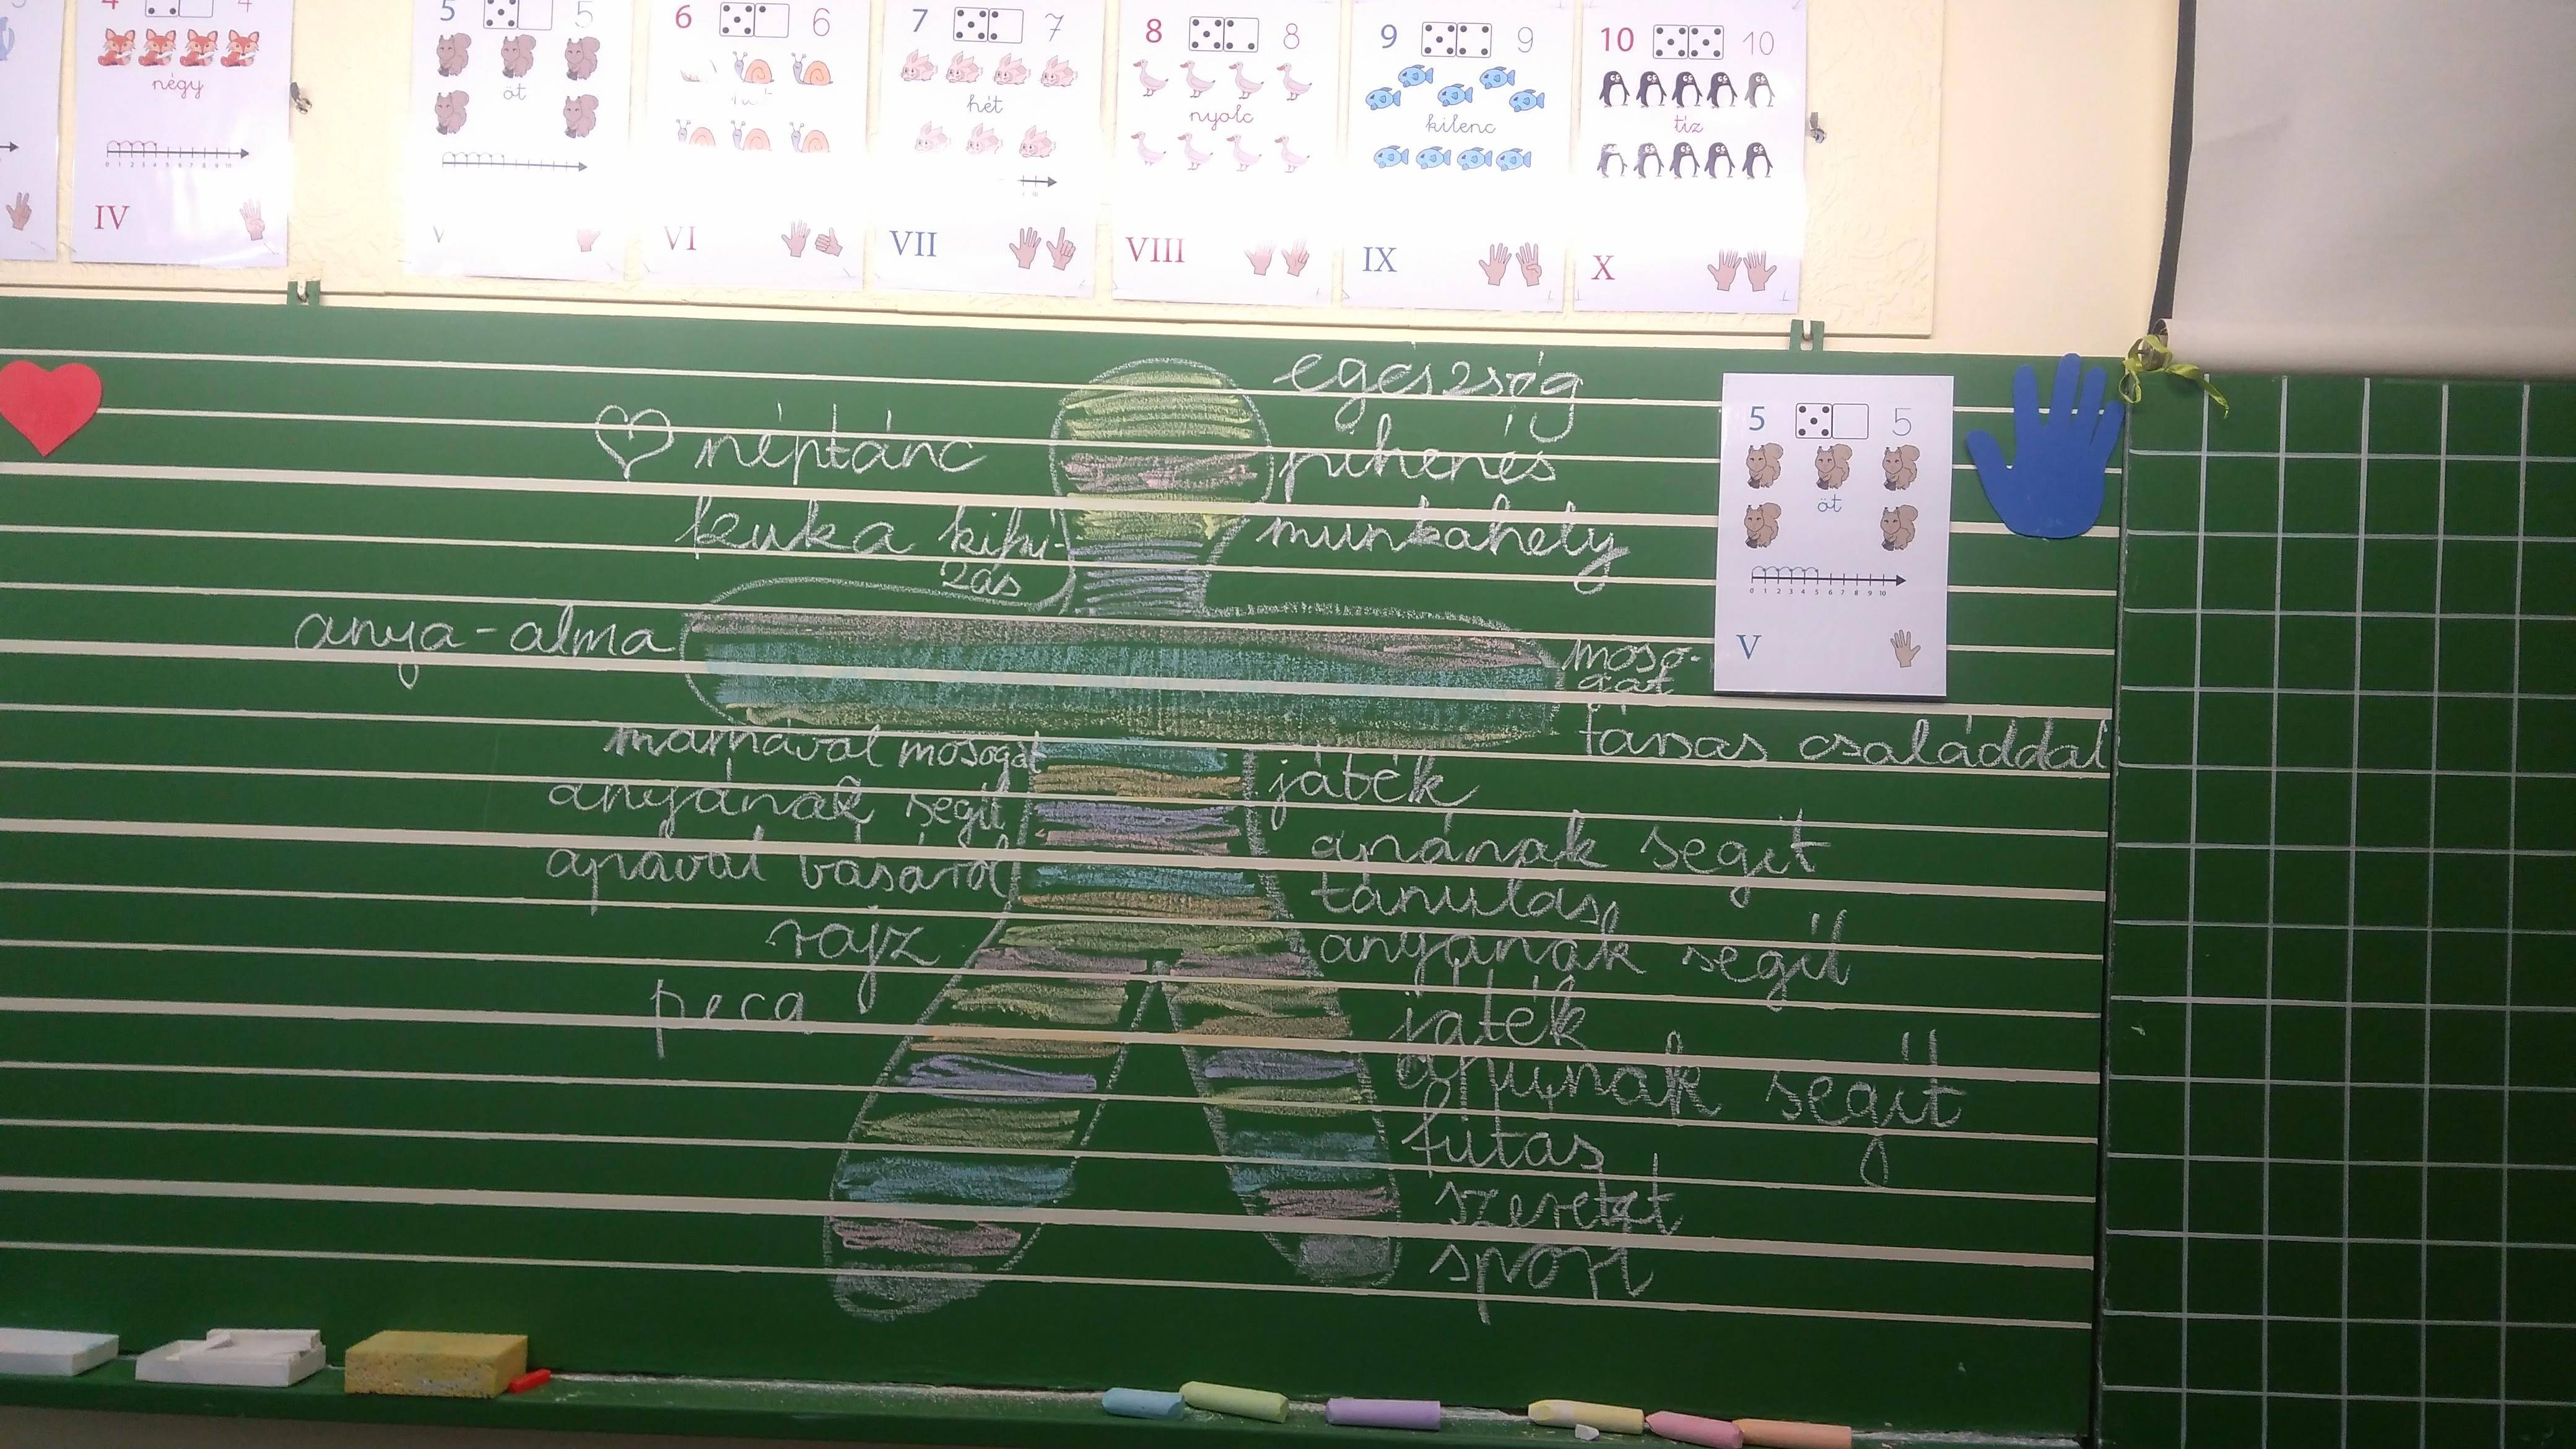 4 4
négy
0 1 2 3 4 5 6 7 8 9 10
IV
5 5
öt
V
6 6
VI
7 7
hét
VII
8 8
nyolc
VIII
9 9
kilenc
IX
10 10
tíz
X
egészség
néptánc
pihenés
kuka kihú-
zás
munkahely
anya-alma
moso-
gat
társas családdal
mamával mosogat
játék
anyának segít
apának segít
apával vásárol
tanulás
rajz
anyának segít
peca
játék
apunak segít
futás
szeretet
sport
5 5
öt
0 1 2 3 4 5 6 7 8 9 10
V